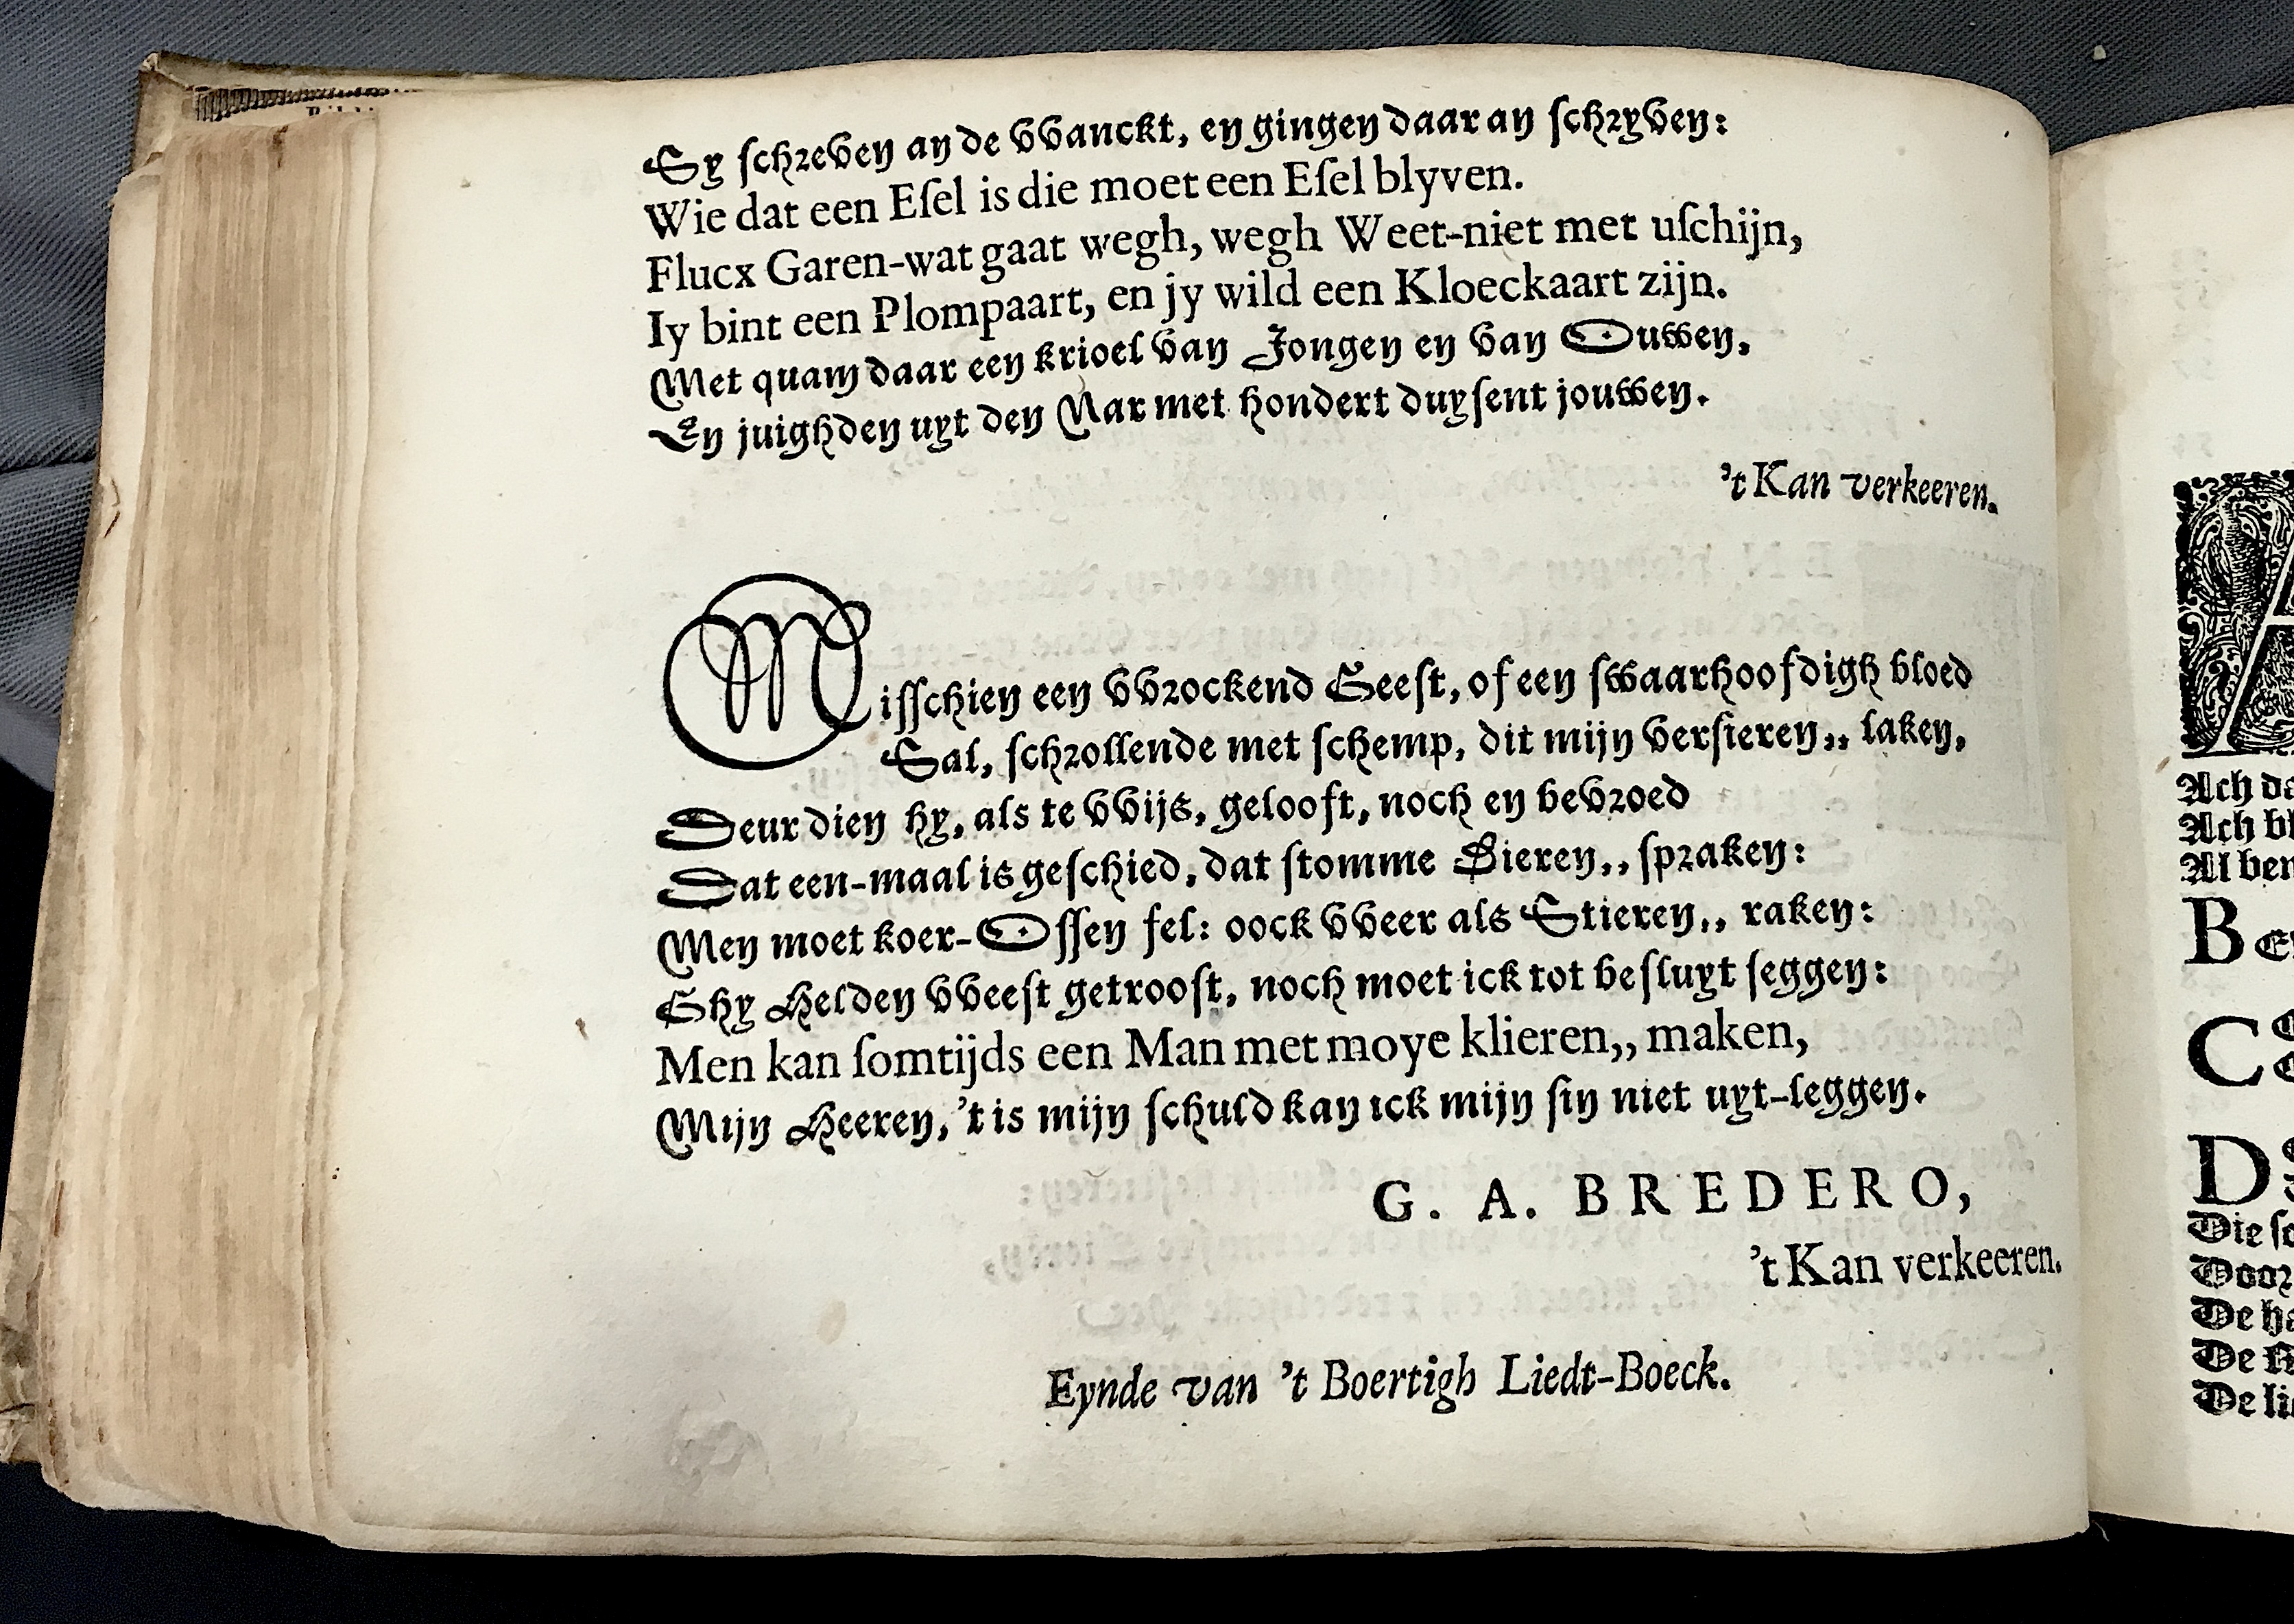 Sy ſchreven an de VVanckt, en gingen daar an ſchryven:
Wie dat een Eſel is die moet een Eſel blyven.
Flucx Garen-wat gaat wegh, wegh Weet-niet met uſchijn,
Iy bint een Plompaart, en jy wild een Kloeckaart zijn.
Met quam daar een krioel van Jongen en van Ouwen,
En juighden uyt den Nar met hondert duyſent jouwen.
't Kan verkeeren.
Miſſchien een VVrockend Geeſt, of een ſwaarhoofdigh bloed
Sal, ſchrollende met ſchemp, dit mijn verſieren,, laken,
Deur dien hy, als te VVijs, gelooft, noch en bevroed
Dat een-maal is geſchied, dat ſtomme Dieren,, ſpraken:
Men moet koer-Oſſen fel: oock VVeer als Stieren,, raken:
Ghy Helden VVeeſt getrooſt, noch moet ick tot beſluyt ſeggen:
Men kan ſomtijds een Man met moye klieren,, maken,
Mijn Heeren, 't is mijn ſchuld kan ick mijn ſin niet uyt-leggen.
G. A. BREDERO,
't Kan verkeeren.
Eynde van 't Boertigh Liedt-Boeck.
Ach
Ach
Al
Die
Door
De
De
De